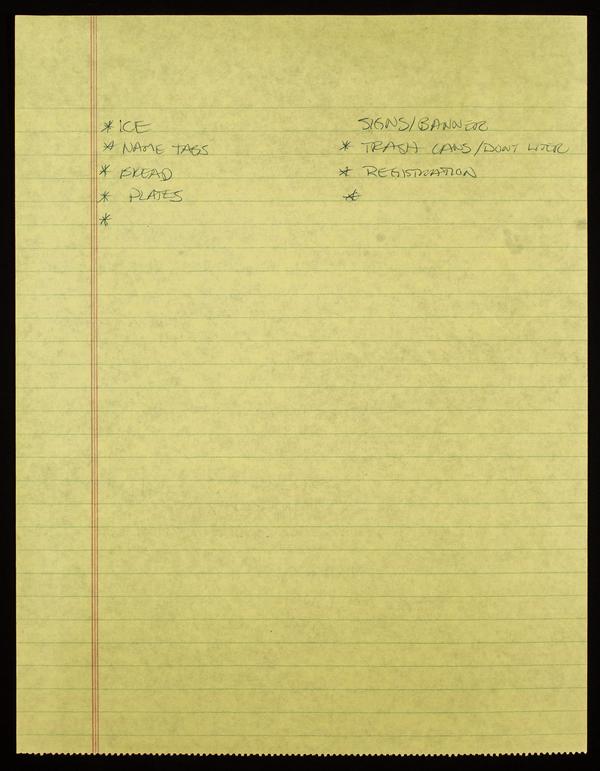 * ICE
* NAME TAGS
* BREAD
* PLATES
*
SIGNS/BANNER
* TRASH CANS/DONT LITER
* REGISTRATION
*